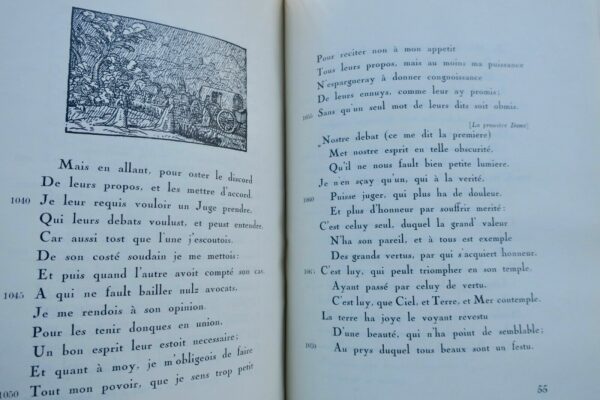 Mais en allant, pour oster le discord
De leurs propos, et les mettre d'accord,
1040 Je leur requis vouloir un Juge prendre,
Qui leurs debats voulust, et peust entendre.
Car aussi tost que l'une j'escoutois,
De son costé soudain je me mettois:
Et puis quand l'autre avoit compté son cas,
1045 A qui ne fault bailler nulz avocats,
Je me rendois à son opinion.
Pour les tenir donques en union,
Un bon esprit leur estoit necessaire;
Et quant à moy, je m'obligeois de faire
1050 Tout mon povoir, que je sens trop petit
Pour reciter non à mon appetit
Tous leurs propos, mais au moins ma puissance
N'espargneray à donner congnoissance
De leurs ennuys, comme leur ay promis;
1055 Sans qu'un seul mot de leurs dits soit obmis.
[La première Dame]
„Nostre debat (ce me dit la premiere)
Met nostre esprit en telle obscurité,
Qu'il ne nous fault bien petite lumiere.
Je n'en sçay qu'un, qui à la verité,
1060 Puisse juger, qui plus ha de douleur,
Et plus d'honneur par souffrir merité:
C'est celuy seul, duquel la grand' valeur
N'ha son pareil, et à tous est exemple
Des grands vertus, par qui s'acquiert honneur.
1065 C'est luy, qui peult triompher en son temple,
Ayant passé par celuy de vertu.
C'est luy, que Ciel, et Terre, et Mer contemple.
La terre ha joye le voyant revestu
D'une beauté, qui n'ha point de semblable;
1070 Au prys duquel tous beaux sont un festu.
55